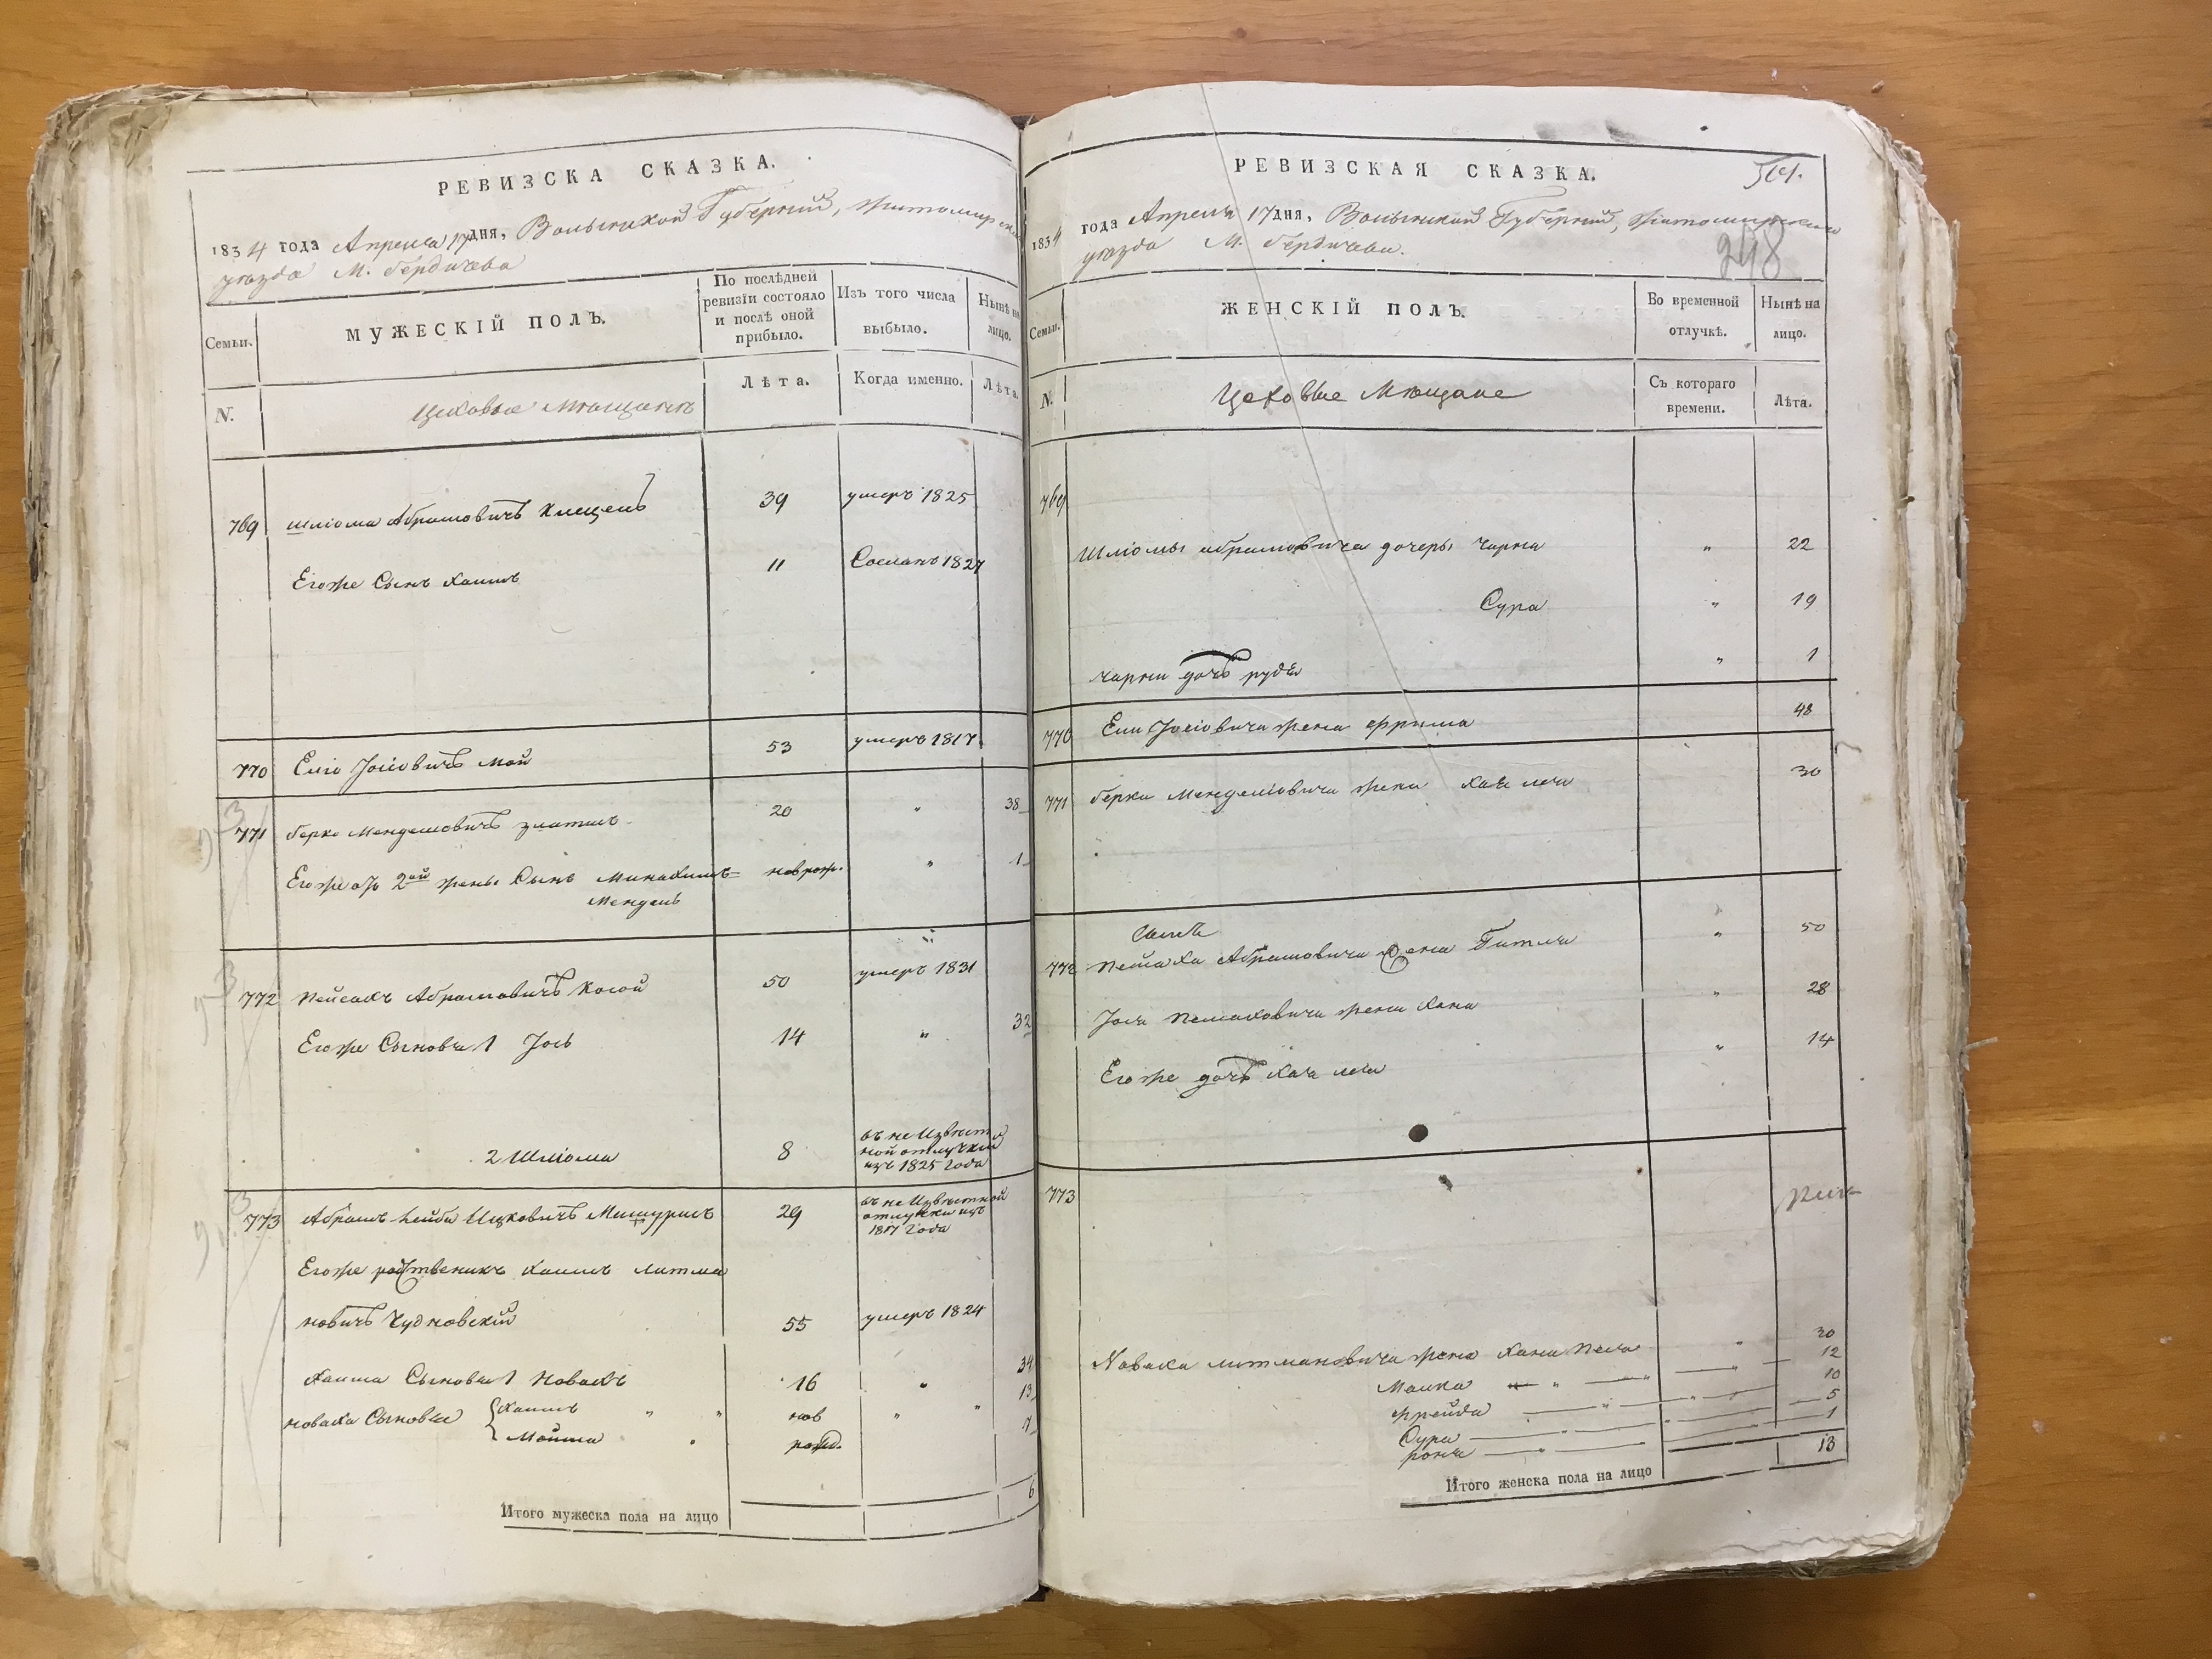 РЕВИЗСКА СКАЗКА.
1834 года Апреля 17 дня, Волынской Губернии, Житомирскаго
уезда М. Бердичева
Семьи.
МУЖЕСКІЙ ПОЛЪ.
По послѣдней ревизіи состояло и послѣ оной прибыло.
Изъ того числа выбыло.
Нынѣ на лицо.
N.
Цеховые Мещане
Лѣта.
Когда именно.
Лѣта.
769 Шліома Абрамовичъ Клещель 39 умеръ 1825
Егоже Сынъ Хаимъ 11 Сосланъ 1827
770 Еліо Јосіовичъ Мой 53 умеръ 1817
771 Берко Менделіовичъ 20 " 38
Егоже отъ 2ой жены Сынъ Минахимъ= новрож. " 1
Мендель
772 Пейсахъ Абрамовичъ Косой 50 умеръ 1831
Егоже Сыновья 1 Јось 14 " 32
2 Шліома 8 въ не Извѣст
ной отлучки
изъ 1825 Года
773 Абрамъ Лейба Ицковичъ Мишурисъ 29 въ не Извѣстной
отлучки изъ
1817 Года
Егоже родственикъ Хаимъ Литма
новичъ Чудновскій 55 умеръ 1824
Хаима Сыновья 1 Новахъ 16 " 34
Новаха Сыновья { Хаимъ " " нов " " 13
Мойша " рожд. 7
Итого мужеска пола на лицо 6
РЕВИЗСКАЯ СКАЗКА.
248
1834 года Апреля 17 дня, Волынской Губерніи, Житомирскаго
уезда М. Бердичева.
Семьи.
ЖЕНСКІЙ ПОЛЪ.
Во временной отлучкѣ.
Нынѣ на лицо.
N.
Цеховые Мещане
Съ котораго времени.
Лѣта.
769
Шліомы Абрамовича дочеры Чарна " 22
Сура " 19
Чарни дочь рудя " 1
770 Ели Јосіовича жена Фрима 48
771 Берка Менделіовича жена Хая леа 30
772 Пейсаха Абрамовича жена Гитля " 50
Јося Пейсаховича жена Хана " 28
Егоже дочь Хая леа " 14
773
Новаха Литмановича жена Хана Песя " 30
Малка " 12
Фрейда " 10
Сура " 5
рохля " 1
Итого женска пола на лицо 13